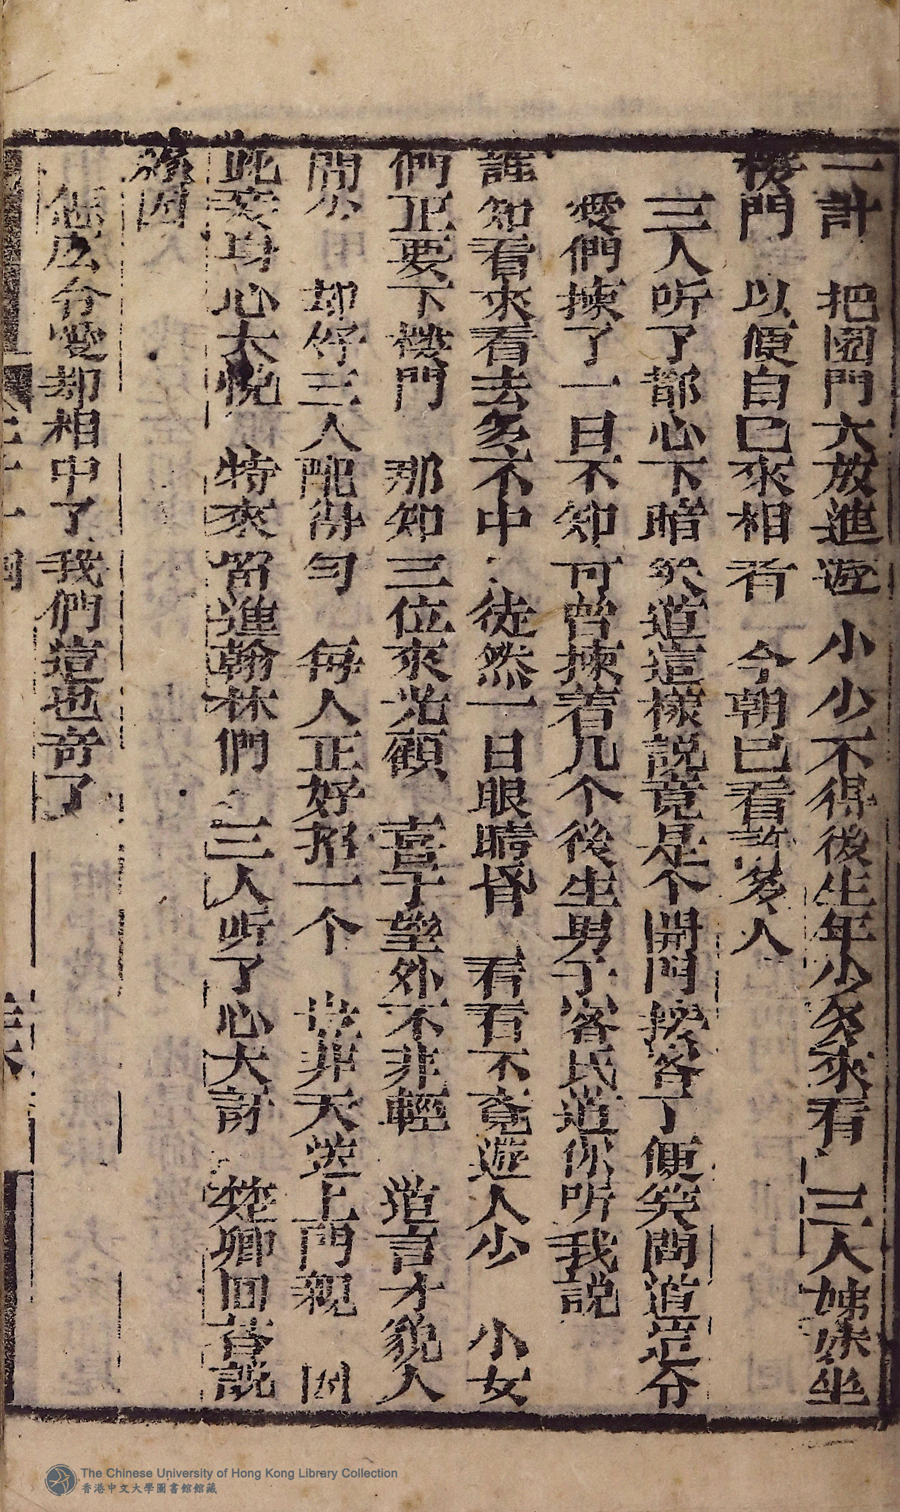 一計 把園門大放進遊 小小不得後生年少多來看 三人姊妹坐
樓門 以便自已來相看 今朝已看許多人
三人听了都心下暗笑道這樣説竟是个開門揍客了便笑問道这今
愛們揀了一日不知可曾揀着几个後生男子客民道你听我説
誰知看來看去多不中 徒然一日眼睛昏 看看不竟遊人少 小女
們正要下樓門 那知三位來光顧 喜于望外不非輕 道言才貌人
間少 却好三人陀得勻 每人正好招一个 豈非天送上門親 因
此妾身心大悅 特來留進翰林們 三人听了心大訝 楚卿回答説
緣因
怎広令愛却相中了我們這也奇了
The Chinese University of Hong Kong Library Collection
香港中文大學圖書館館藏